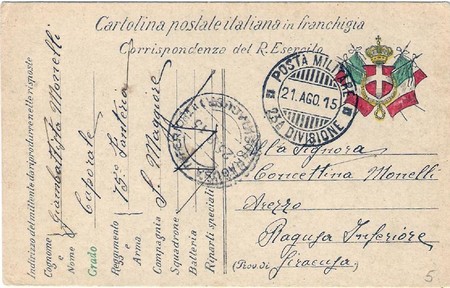 Cartolina postale italiana in franchigia
Corrispondenza del R. Esercito
POSTA MILITARE
21.AGO.15
23A DIVISIONE
Alla Signora
Concettina Monelli
Arezzo
Ragusa Inferiore
(Prov. di Siracusa)
Indirizzo del mittente da riprodurre nelle risposte
Cognome e Nome Giambattista
Grado Caporale
Reggimento e Arma 75° Fanteria
Compagnia S. Maggiore
Squadrone
Batteria
Riparti speciali
5